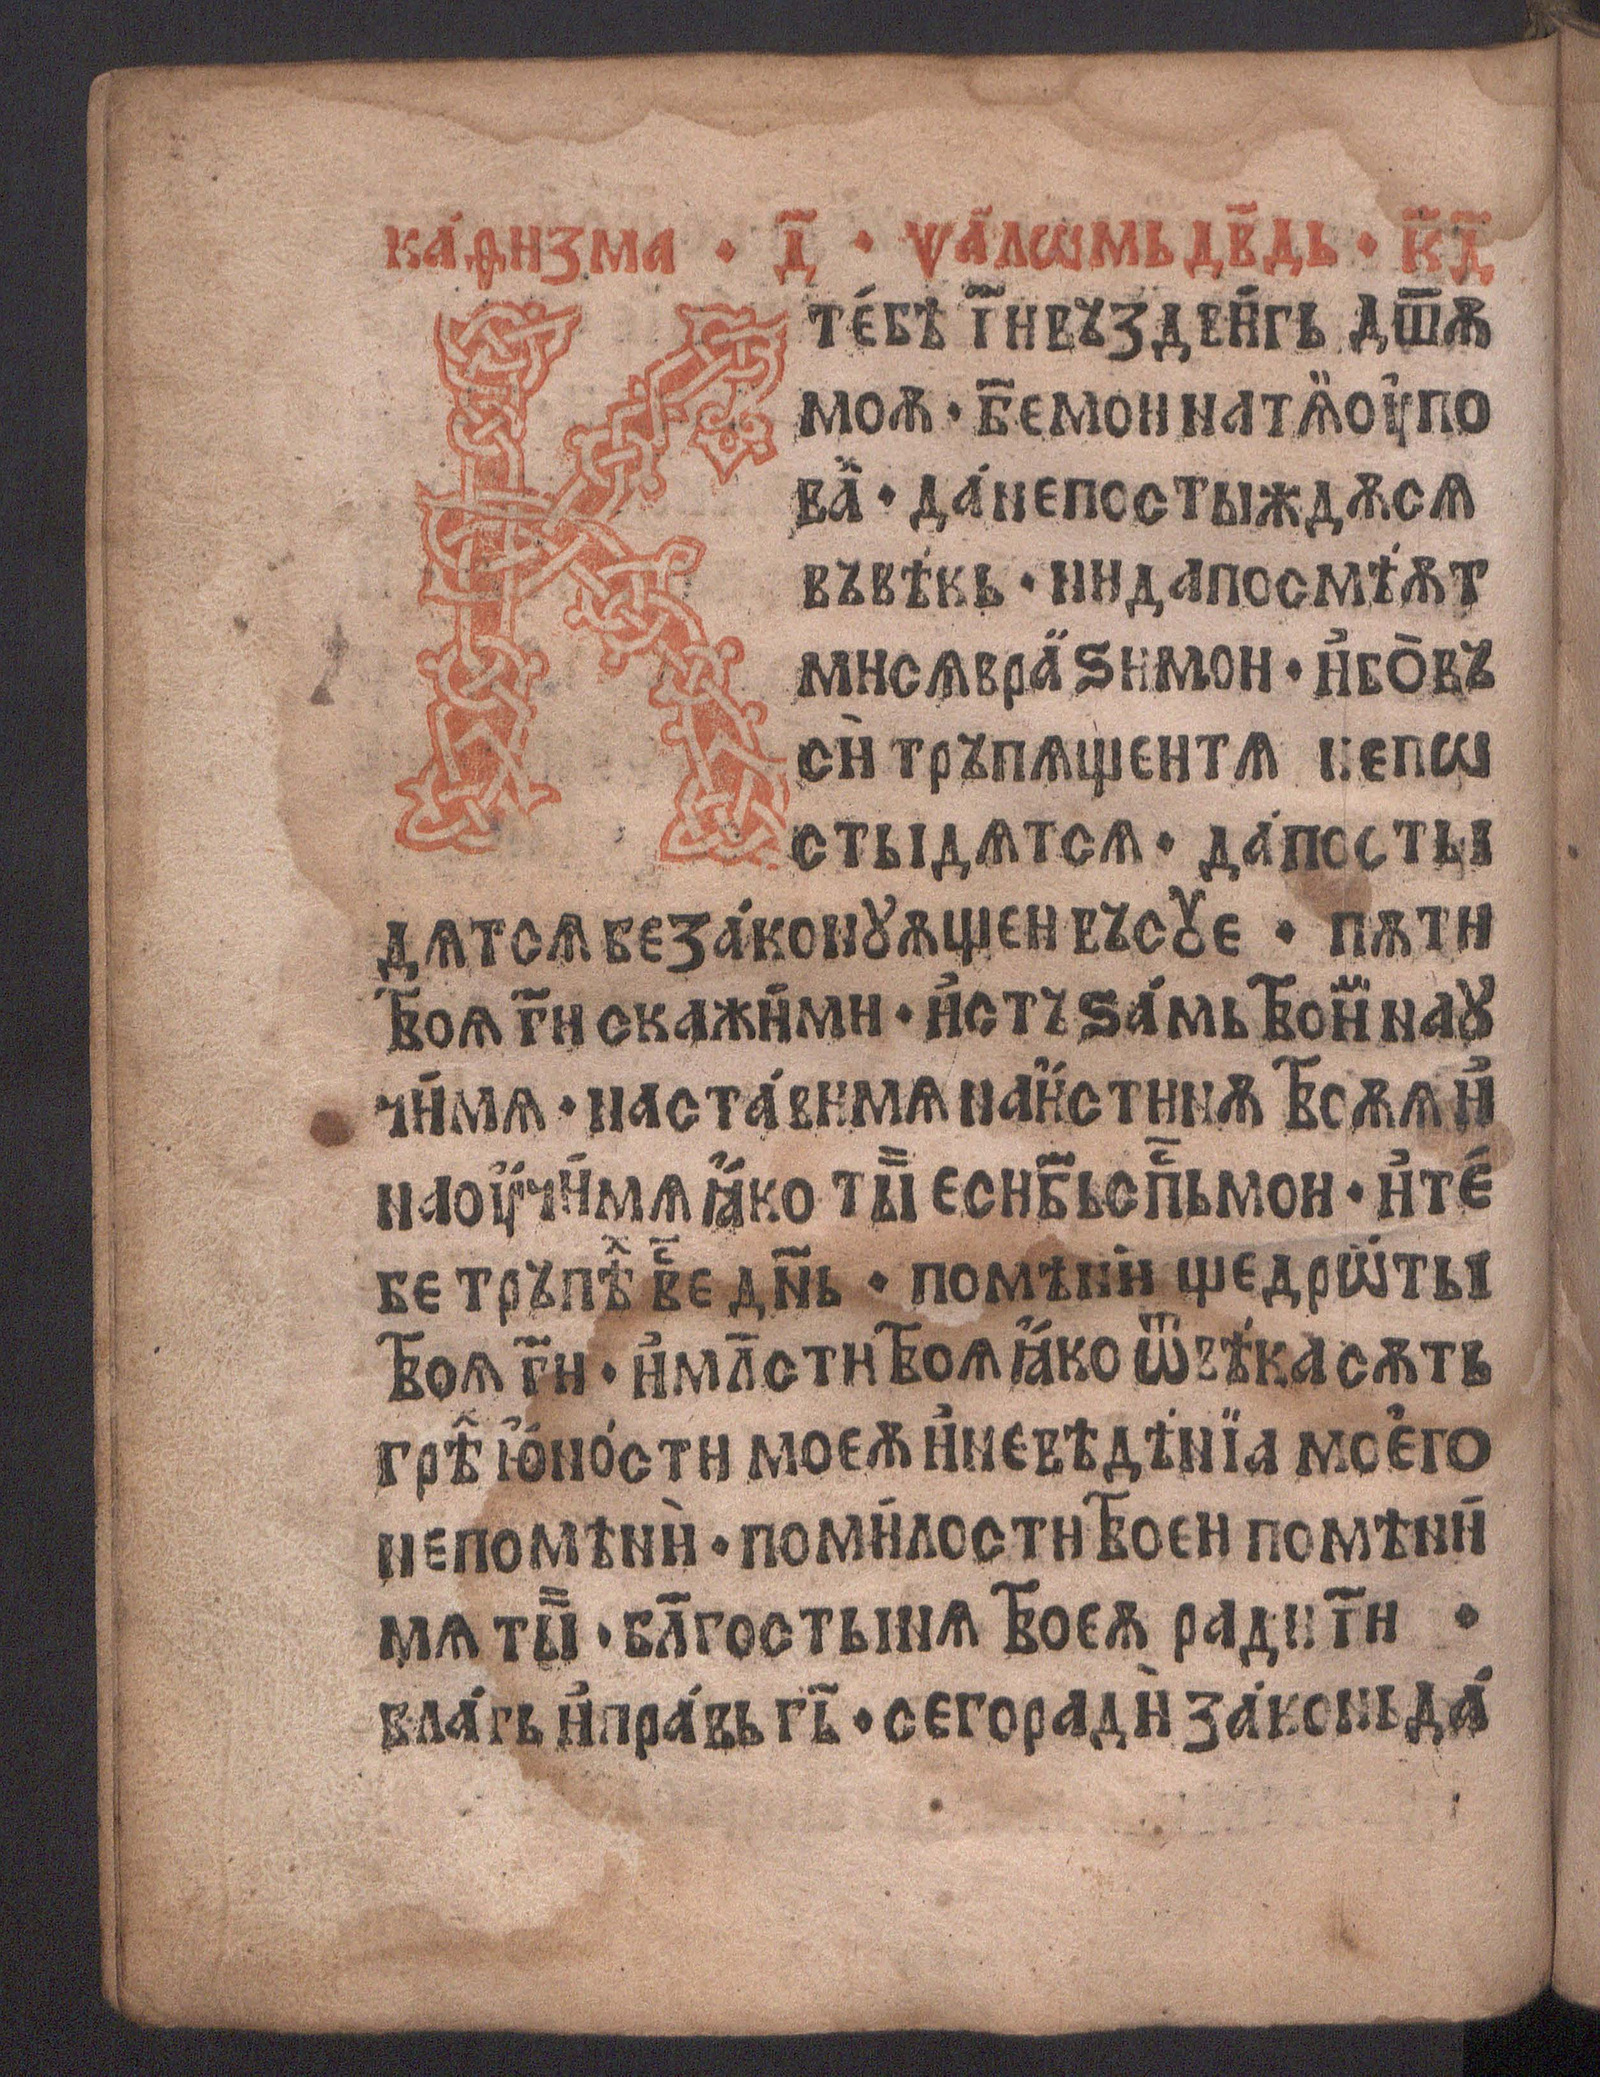 ка́ѳизма · д҃ · ѱа̑лѡмь дв҃дь · к҃д҃
К тебѣ г҃и въздвиѓь дш҃ѫ
моѫ · б҃е мои на тѧ̏ оу҆по
ва̏ · да́ не постыждѫ сѧ
въ вѣ́кь · ни да посмѣѫ́т
ми сѧ вра̏ѕи мои · и҆бо̀ въ
сѝ тръпѧщеи тѧ не пѡ
стыдѧт сѧ · да́ посты
дѧт сѧ беза́конꙋѫщеи въсꙋ́е · пѫти
твоѧ г҃и скажи́ ми · и҆ стъѕа́мь твои̏ наꙋ
чи́ мѧ · наста́ви мѧ на и҆́стинѫ твоѫѧ и҆
наоу҆чи́ мѧ ꙗ҆́ко ты̏ еси б҃ь сп҃ⷭь мои · и҆ те́
бе тръпѣⷯ вⷭ҇е дн҃ь · помѣни̇ щедрѡ̏ты
твоѧ г҃и · и҆ мл҃сти твоѧ ꙗ҆́ко ѿ вѣ́ка сѫть
грѣ̑ ю҆но́сти моеѫ и҆ невѣдѣ́нїа мое҆го
не помѣнѝ · по ми́лости твоеи помѣни́
мѧ ты̏ · бл҃гостынѧ твоеѫ ради г҃и ·
бла́гь и҆ пра́вь г҃ь · сего радѝ за́конь да́